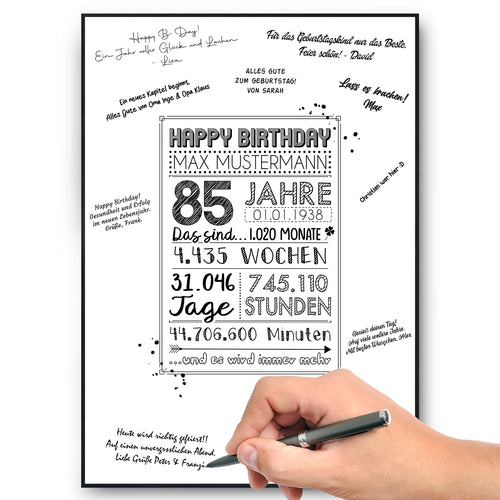 Happy B-Day!
Ein Jahr voller Glück und Lachen
- Lisa
Für das Geburtstagskind nur das Beste.
Feier schön! - David
ALLES GUTE
ZUM GEBURTSTAG!
VON SARAH
Lass es krachen!
Max
Ein neues Kapitel beginnt,
Alles Gute von Oma Inge & Opa Klaus
Christian war hier :-D
HAPPY BIRTHDAY
MAX MUSTERMANN
85 JAHRE
01.01.1938
Das sind... 1.020 MONATE
4.435 WOCHEN
31.046 Tage
745.110 STUNDEN
44.706.600 Minuten
...und es wird immer mehr
Happy Birthday!
Gesundheit und Erfolg
im neuen Lebensjahr.
Grüße, Frank.
Genieß deinen Tag!
Auf viele weitere Jahre.
Mit besten Wünschen, Alex
Heute wird richtig gefeiert!!
Auf einen unvergesslichen Abend.
Liebe Grüße Peter & Franzi